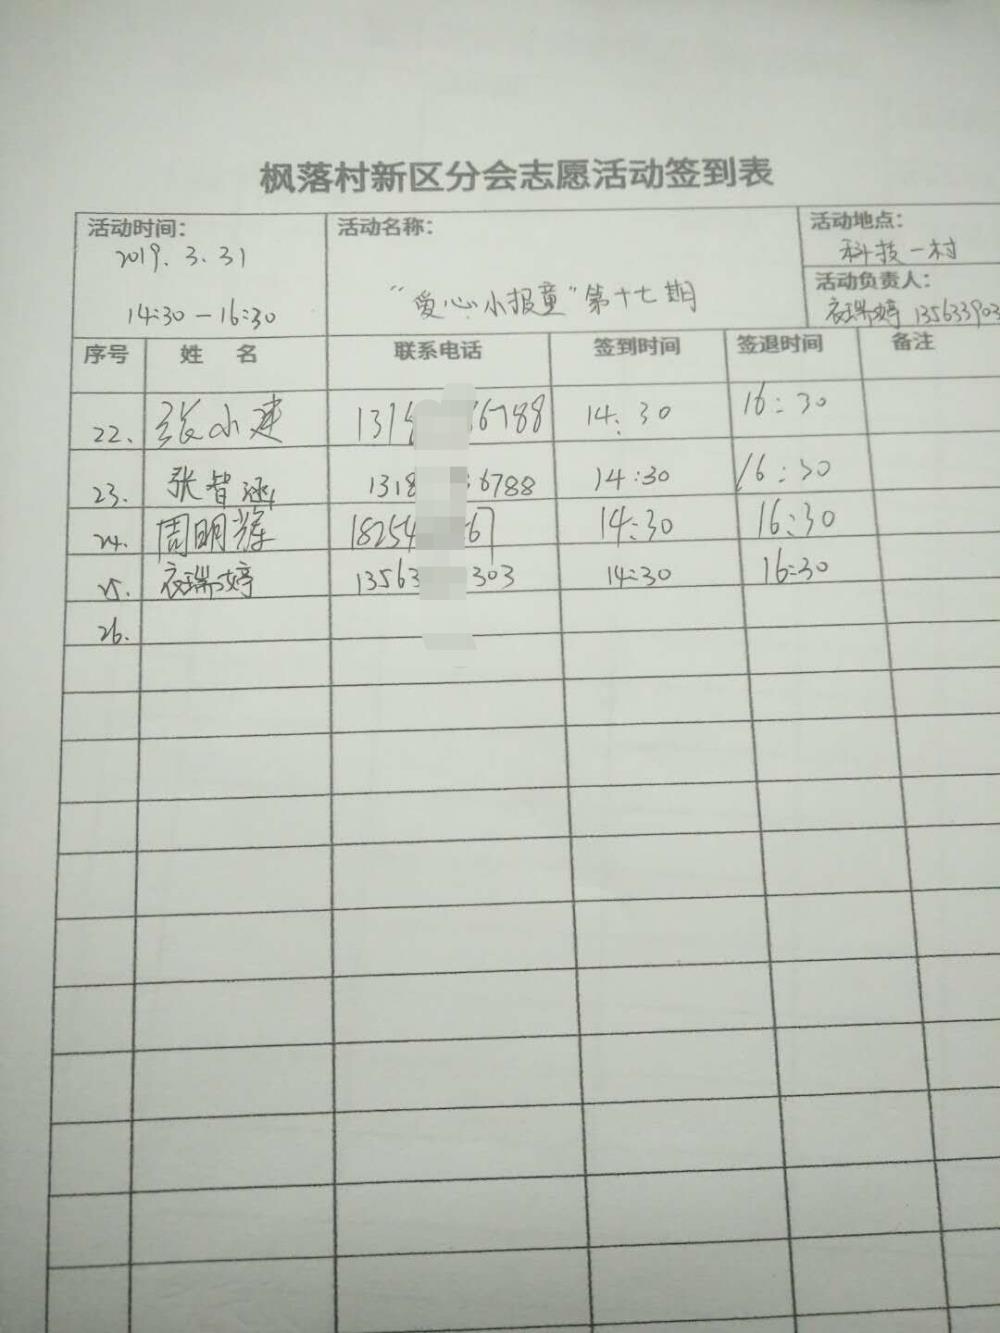 枫落村新区分会志愿活动签到表
活动时间：
2019.3.31
14:30-16:30
活动名称：
"爱心小报童"第十七期
活动地点：
科技一村
活动负责人：
衣瑞婷 135633903
序号 姓 名 联系电话 签到时间 签退时间 备注
22. 张小建 131 6788 14:30 16:30
23. 张智涵 1318 6788 14:30 16:30
24. 周明辉 18254 67 14:30 16:30
25. 衣瑞婷 13563 303 14:30 16:30
26.